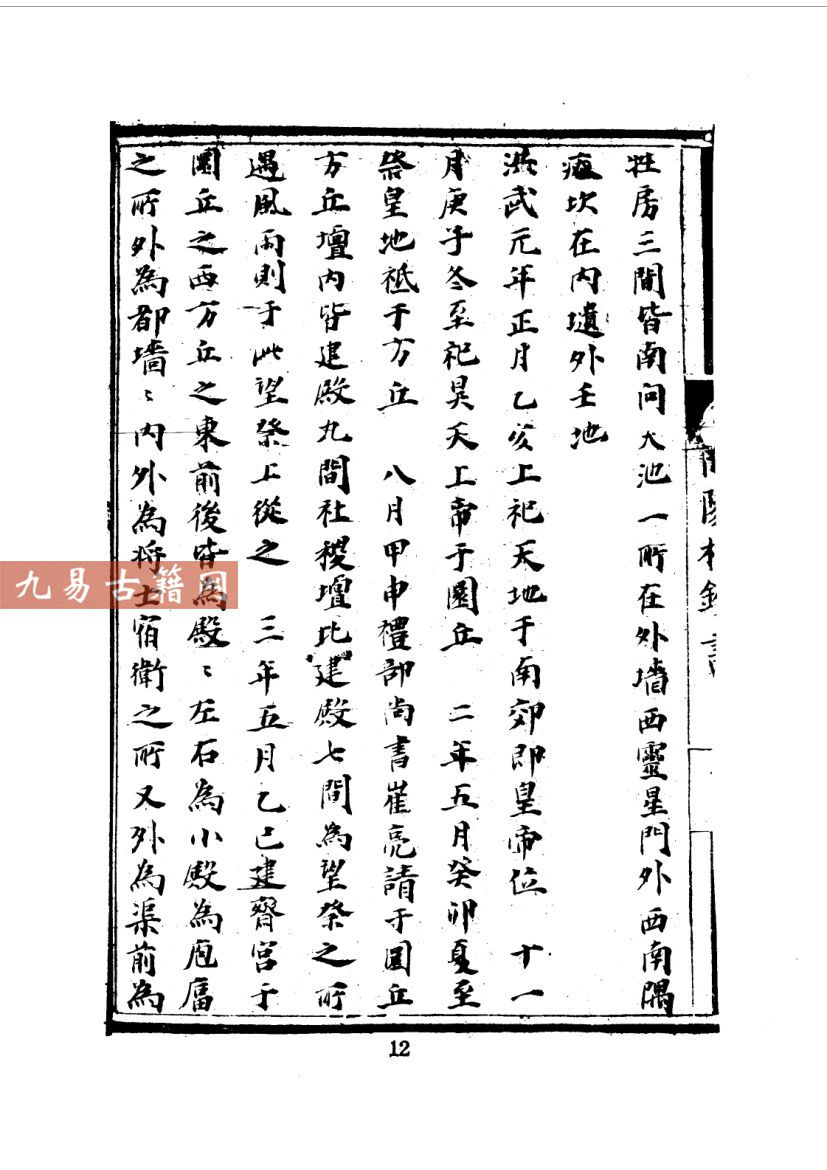 牲房三間皆南向大池一所在外墻西靈星門外西南隅
瘞坎在内壝外壬地
洪武元年正月乙亥上祀天地于南郊即皇帝位　十一
月庚子冬至祀昊天上帝于圜丘　二年五月癸卯夏至
祭皇地祗于方丘　八月甲申禮部尚書崔亮請于圜丘
方丘壇内皆建殿九間社稷壇比建殿七間為望祭之所
遇風雨則于此望祭上從之　三年五月乙巳建齋宮于
圜丘之西方丘之東前後皆為殿〻左右為小殿為庖湢
之所外為都墻〻内外為將士宿衛之所又外為渠前為
九易古籍网
12